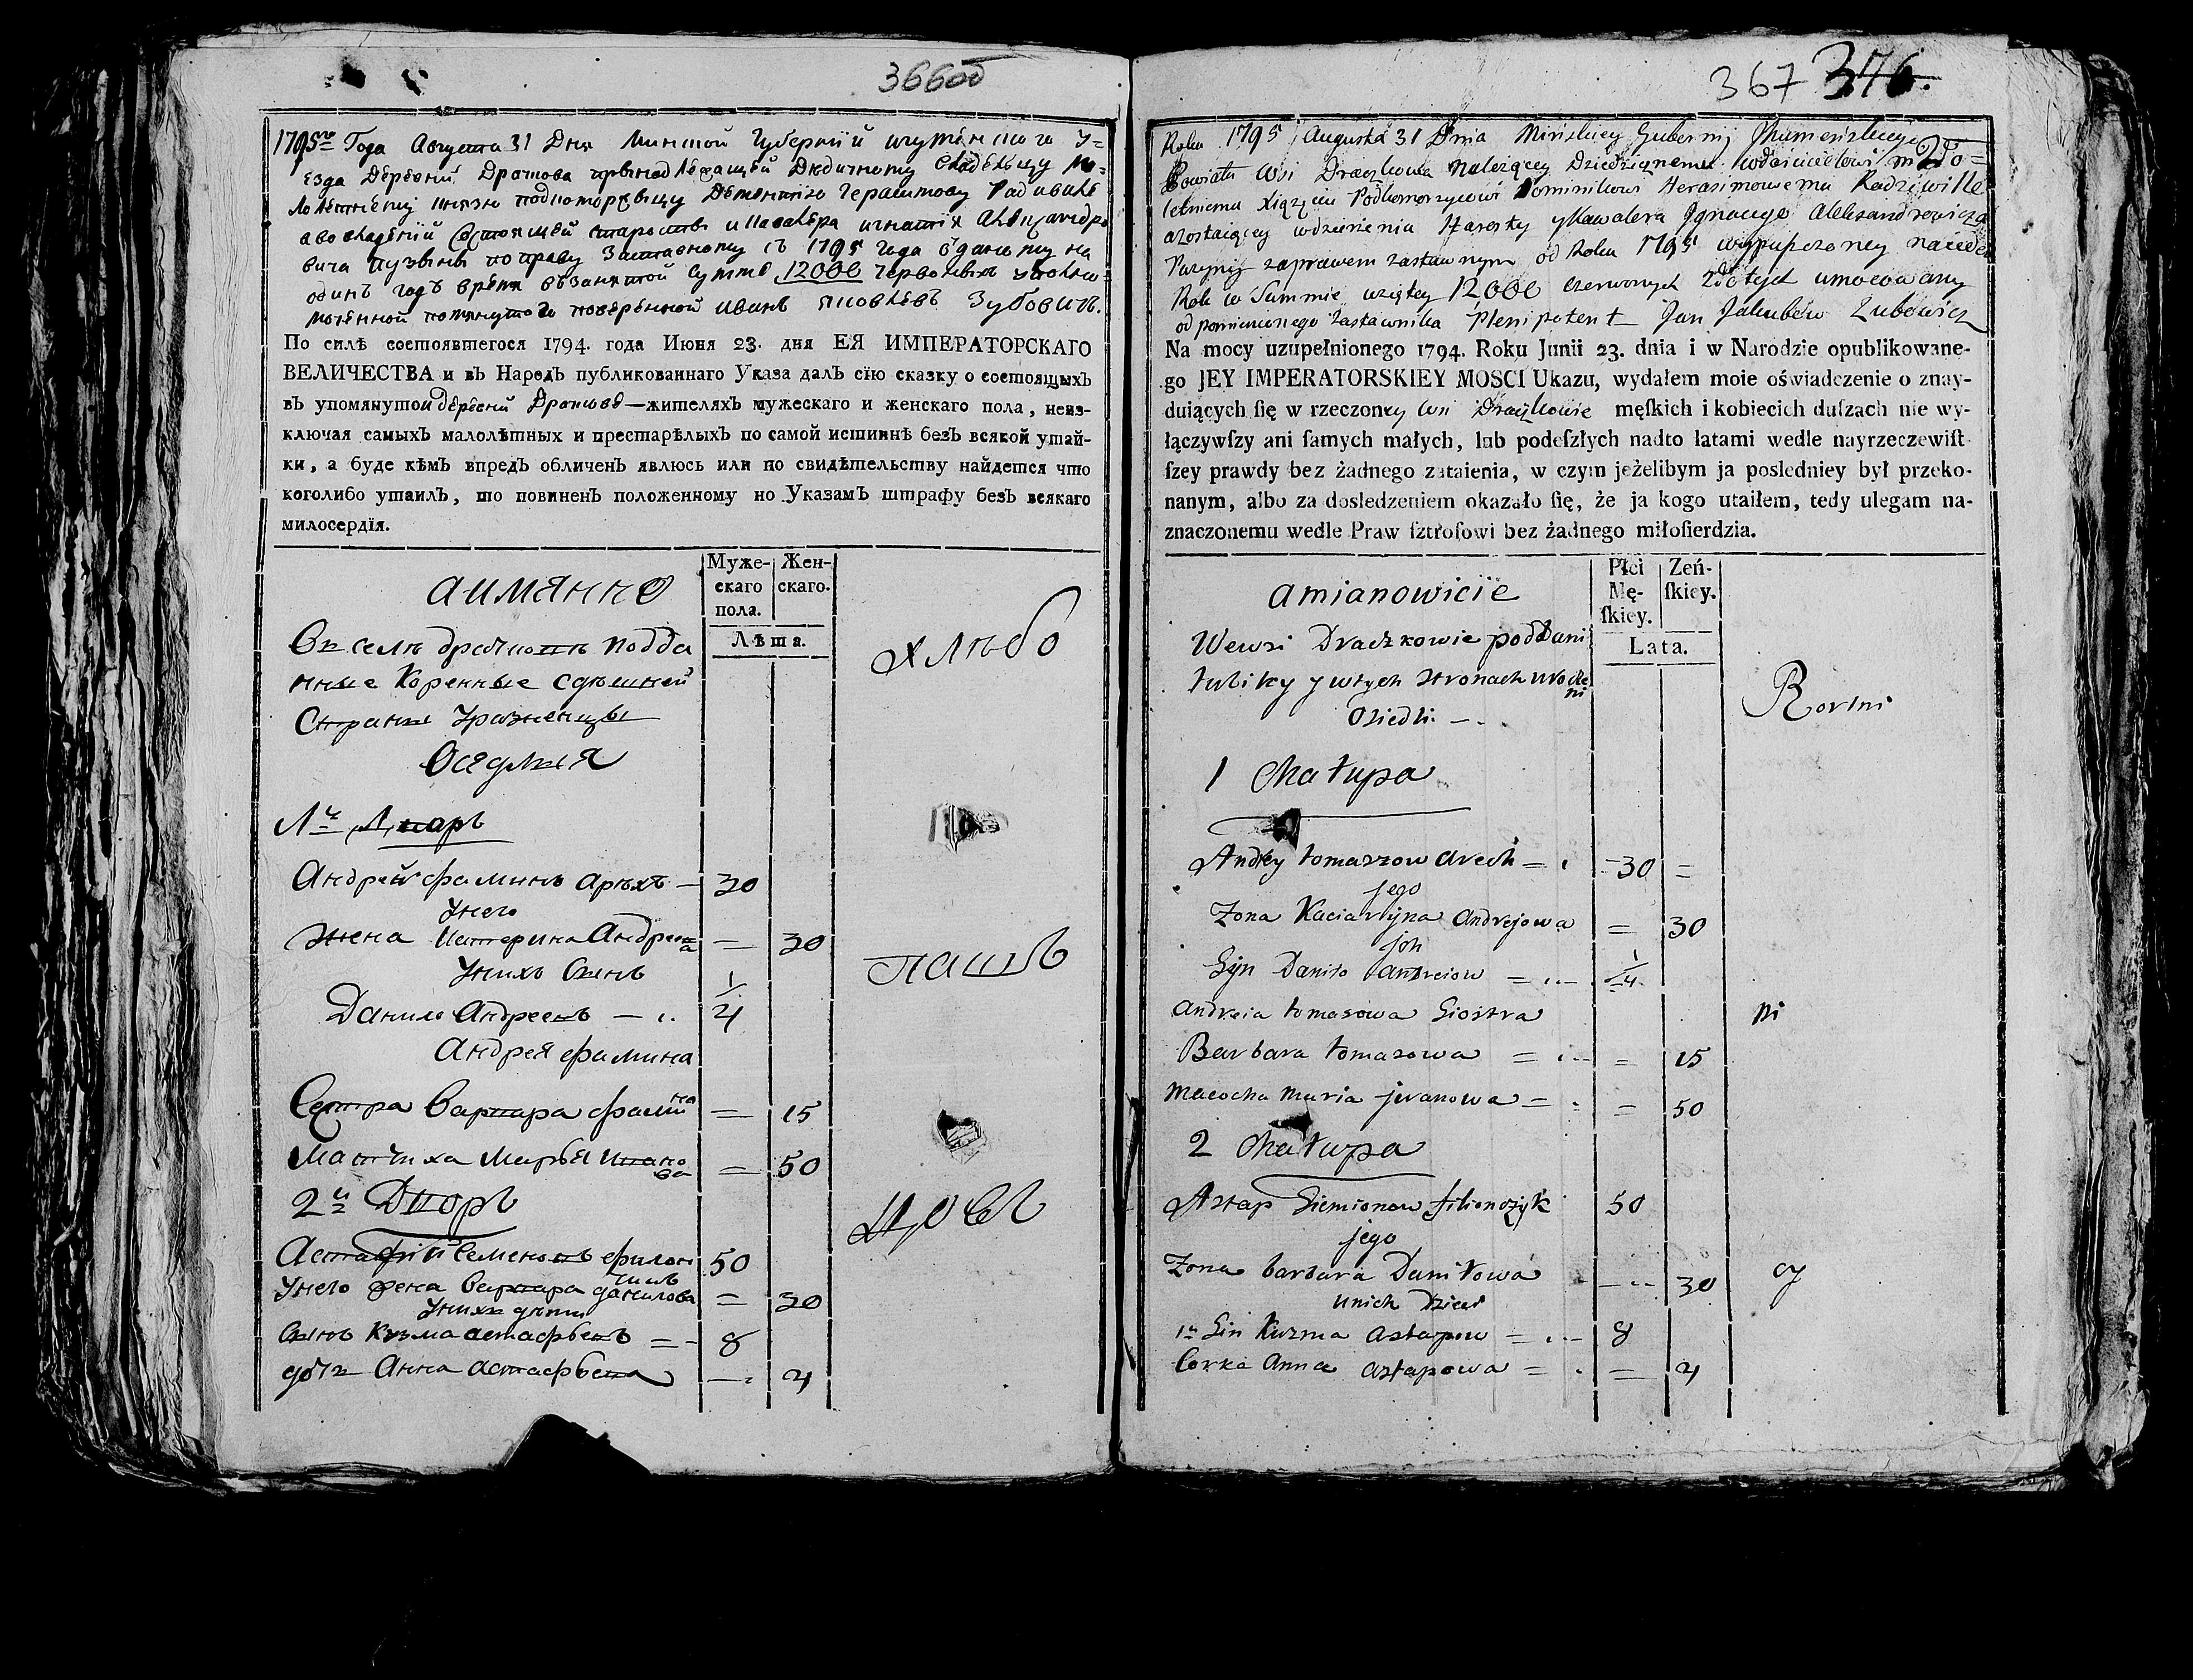 366об
1795го Года Августа 31 Дня Минской Губернїи игуменскаго у=
езда Деревни Драчкова принадлежащей Дедичному владельцу ма=
лолетнему князю подкоморжицу Доминику Герасимову Радивиле
а во владении состоящей старосты и кавалера игнатия Александро
вича пузыны по праву заставному съ 1795 года отданому на
одинъ годъ время въ занятой сумме 12000 червоныхъ уполно
моченной помянутого поверенной иванъ яковлевъ Зубовичъ.
По силѣ состоявшегося 1794. года Июня 23. дня ЕЯ ИМПЕРАТОРСКАГО
ВЕЛИЧЕСТВА и въ Народъ публикованнаго Указа далъ сїю сказку о состоящыхъ
въ упомянутой деревни Драчкове—жителяхъ мужескаго и женскаго пола, неиз-
ключая самыхъ малолѣтныхъ и престарѣлыхъ по самой истиннѣ безъ всякой утай-
ки, а буде кѣмъ впредъ обличенъ явлюсь или по свидѣтельству найдется что
коголибо утаилъ, то повиненъ положенному по Указамъ штрафу безъ всякаго
милосердїя.
Муже-
скаго
пола.
Жен-
скаго.
Лѣта.
а имянно
Въ селѣ драчковѣ подда
нные Коренные сдешней
Страны Уроженцы
Оседлыя
хлѣбо
1й Дворъ
Андрей фоминъ арѣхъ — 30
у него
жена Катерина Андреева — 30
у нихъ Сынъ
Данило Андреевъ — 1/4
Андрея фомина
Сестра варвара фомина = 15
Мачиха Марья Иванова = 50
пашъ
2й Дворъ
Астафий Семеновъ филончикъ 50
у него жена варвара данилова = 30
у нихъ дети
Сынъ Кузма астафьевъ = 8
дочь Анна астафьева — 4
цовъ
367 376.
Roku 1795 Augusta 31 Dnia Minskiey Gubernij Jhumenskiego
Powiatu Wsi Draczkowa Nalezącey Dziedzicznemu włascicielowi mało=
letniemu Xiązęciu Podkomorzycowi Dominikowi Herasimowemu Radziwille
a zostaiącey w dzierzeniu Starosty y Kawalera Jgnacego Aleksandrowicza
Puzyny za prawem zastawnym od Roku 1795 wypuszczoney na ieden
Rok w Summie wziętey 12000 czerwonych złotych umocowany
od pomienionego zastawnika Plenipotent Jan Jakubow Zubowicz
Na mocy uzupełnionego 1794. Roku Junii 23. dnia i w Narodzie opublikowane-
go JEY IMPERATORSKIEY MOSCI Ukazu, wydałem moie oświadczenie o znay-
duiących ſię w rzeczoney wsi Draczkowie męſkich i kobiecich duſzach nie wy-
łączywſzy ani ſamych małych, lub podeſzłych nadto latami wedle nayrzeczewiſt
ſzey prawdy bez żadnego zataienia, w czym jeżelibym ja posledniey był przeko-
nanym, albo za dosledzeniem okazało ſię, że ja kogo utaiłem, tedy ulegam na-
znaczonemu wedle Praw ſztroſowi bez żadnego miłoſierdzia.
Płci
Mę-
ſkiey.
Zeń-
ſkiey.
Lata.
amianowicie
Wewsi Draczkowie poddani
tubilcy y wtych stronach urodzeni
Osiedli —
Rorlni
1 Chałupa
Andrey tomaszow arech = 30 =
jego
Zona Kaciaryna andrejowa = 30
joh
Syn Daniło andreiow = 1/4
andreia tomasowa Siostra
Barbara tomasowa = = 15
macocha maria jwanowa = = 50
ni
2 Chałupa
Astap Siemionow filonczyk 50
jego
Zona barbara Daniłowa — 30
unich Dzieci
1n Sin Kuzma astapow = 8
Corka Anna astapowa = = 4
cy